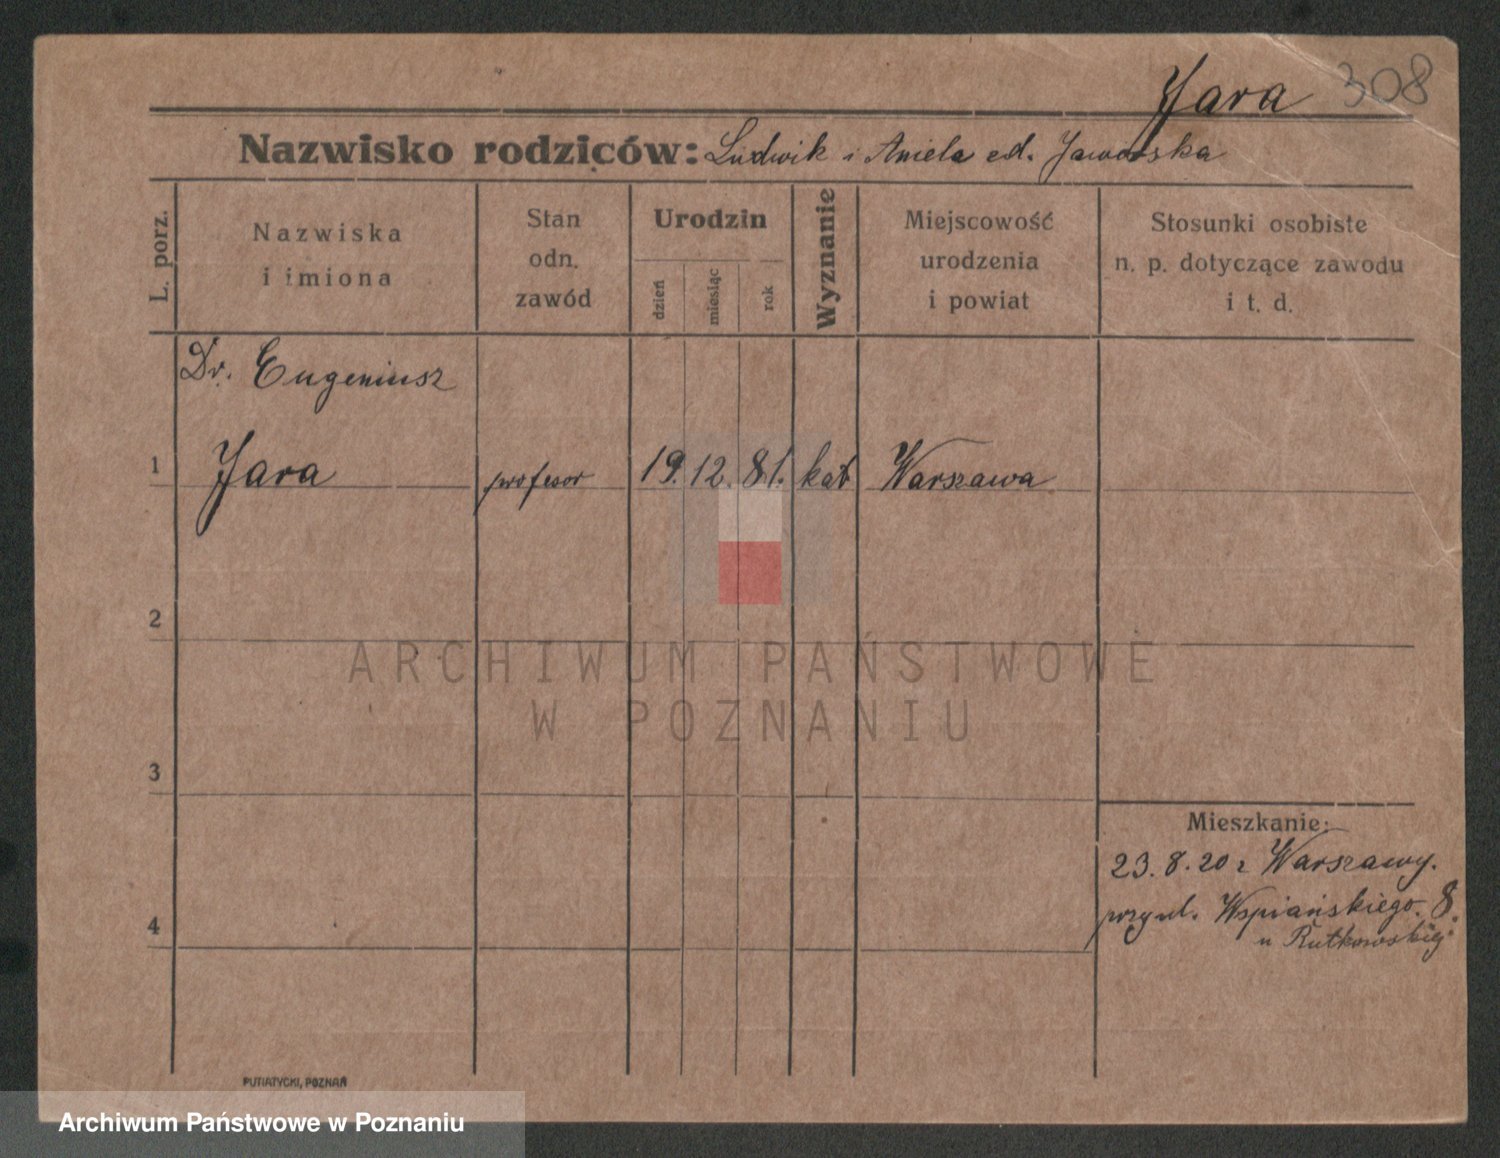 Jara 308
Nazwisko rodziców: Ludwik i Aniela ed. Jaworska
L. porz.
Nazwiska
i imiona
Stan
odn.
zawód
Urodzin
dzień
miesiąc
rok
Wyznanie
Miejscowość
urodzenia
i powiat
Stosunki osobiste
n. p. dotyczące zawodu
i t. d.
Dr. Eugeniusz
1 Jara profesor 19. 12. 81. kat Warszawa
2
ARCHIWUM PAŃSTWOWE
W POZNANIU
3
Mieszkanie:
23. 8. 20 z Warszawy.
przy ul. Wspiańskiego. 8.
u Rutkowskiej
4
PUTIATYCKI, POZNAŃ
Archiwum Państwowe w Poznaniu